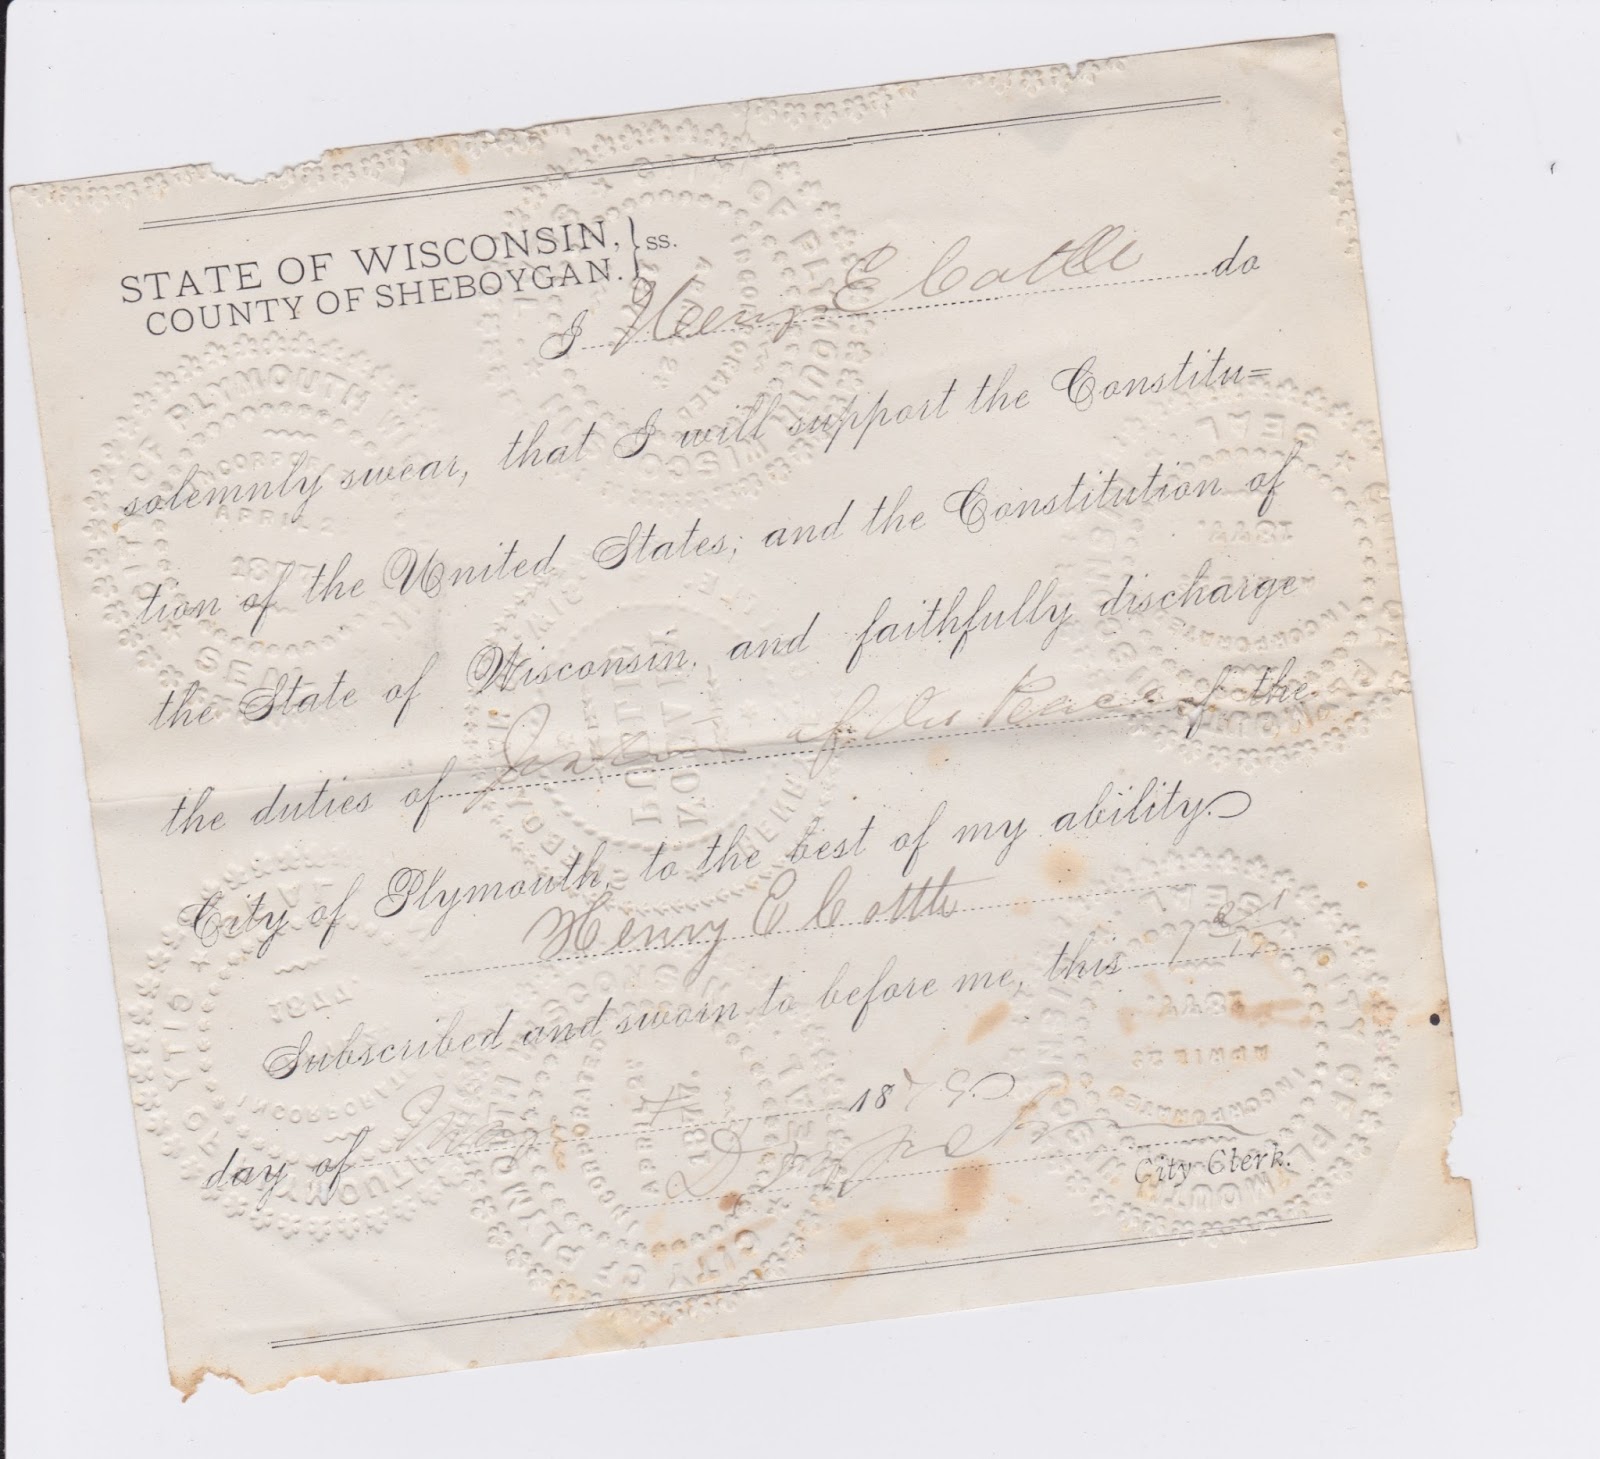 STATE OF WISCONSIN, } ss.
COUNTY OF SHEBOYGAN.
I Henry E Cottle do
solemnly swear, that I will support the Constitu=
tion of the United States, and the Constitution of
the State of Wisconsin, and faithfully discharge
the duties of Justice of the Peace of the
City of Plymouth, to the best of my ability.
Henry E Cottle
Subscribed and sworn to before me, this
day of May 1879.
City Clerk.
CITY OF PLYMOUTH
INCORPORATED
APRIL 2
1877
SEAL